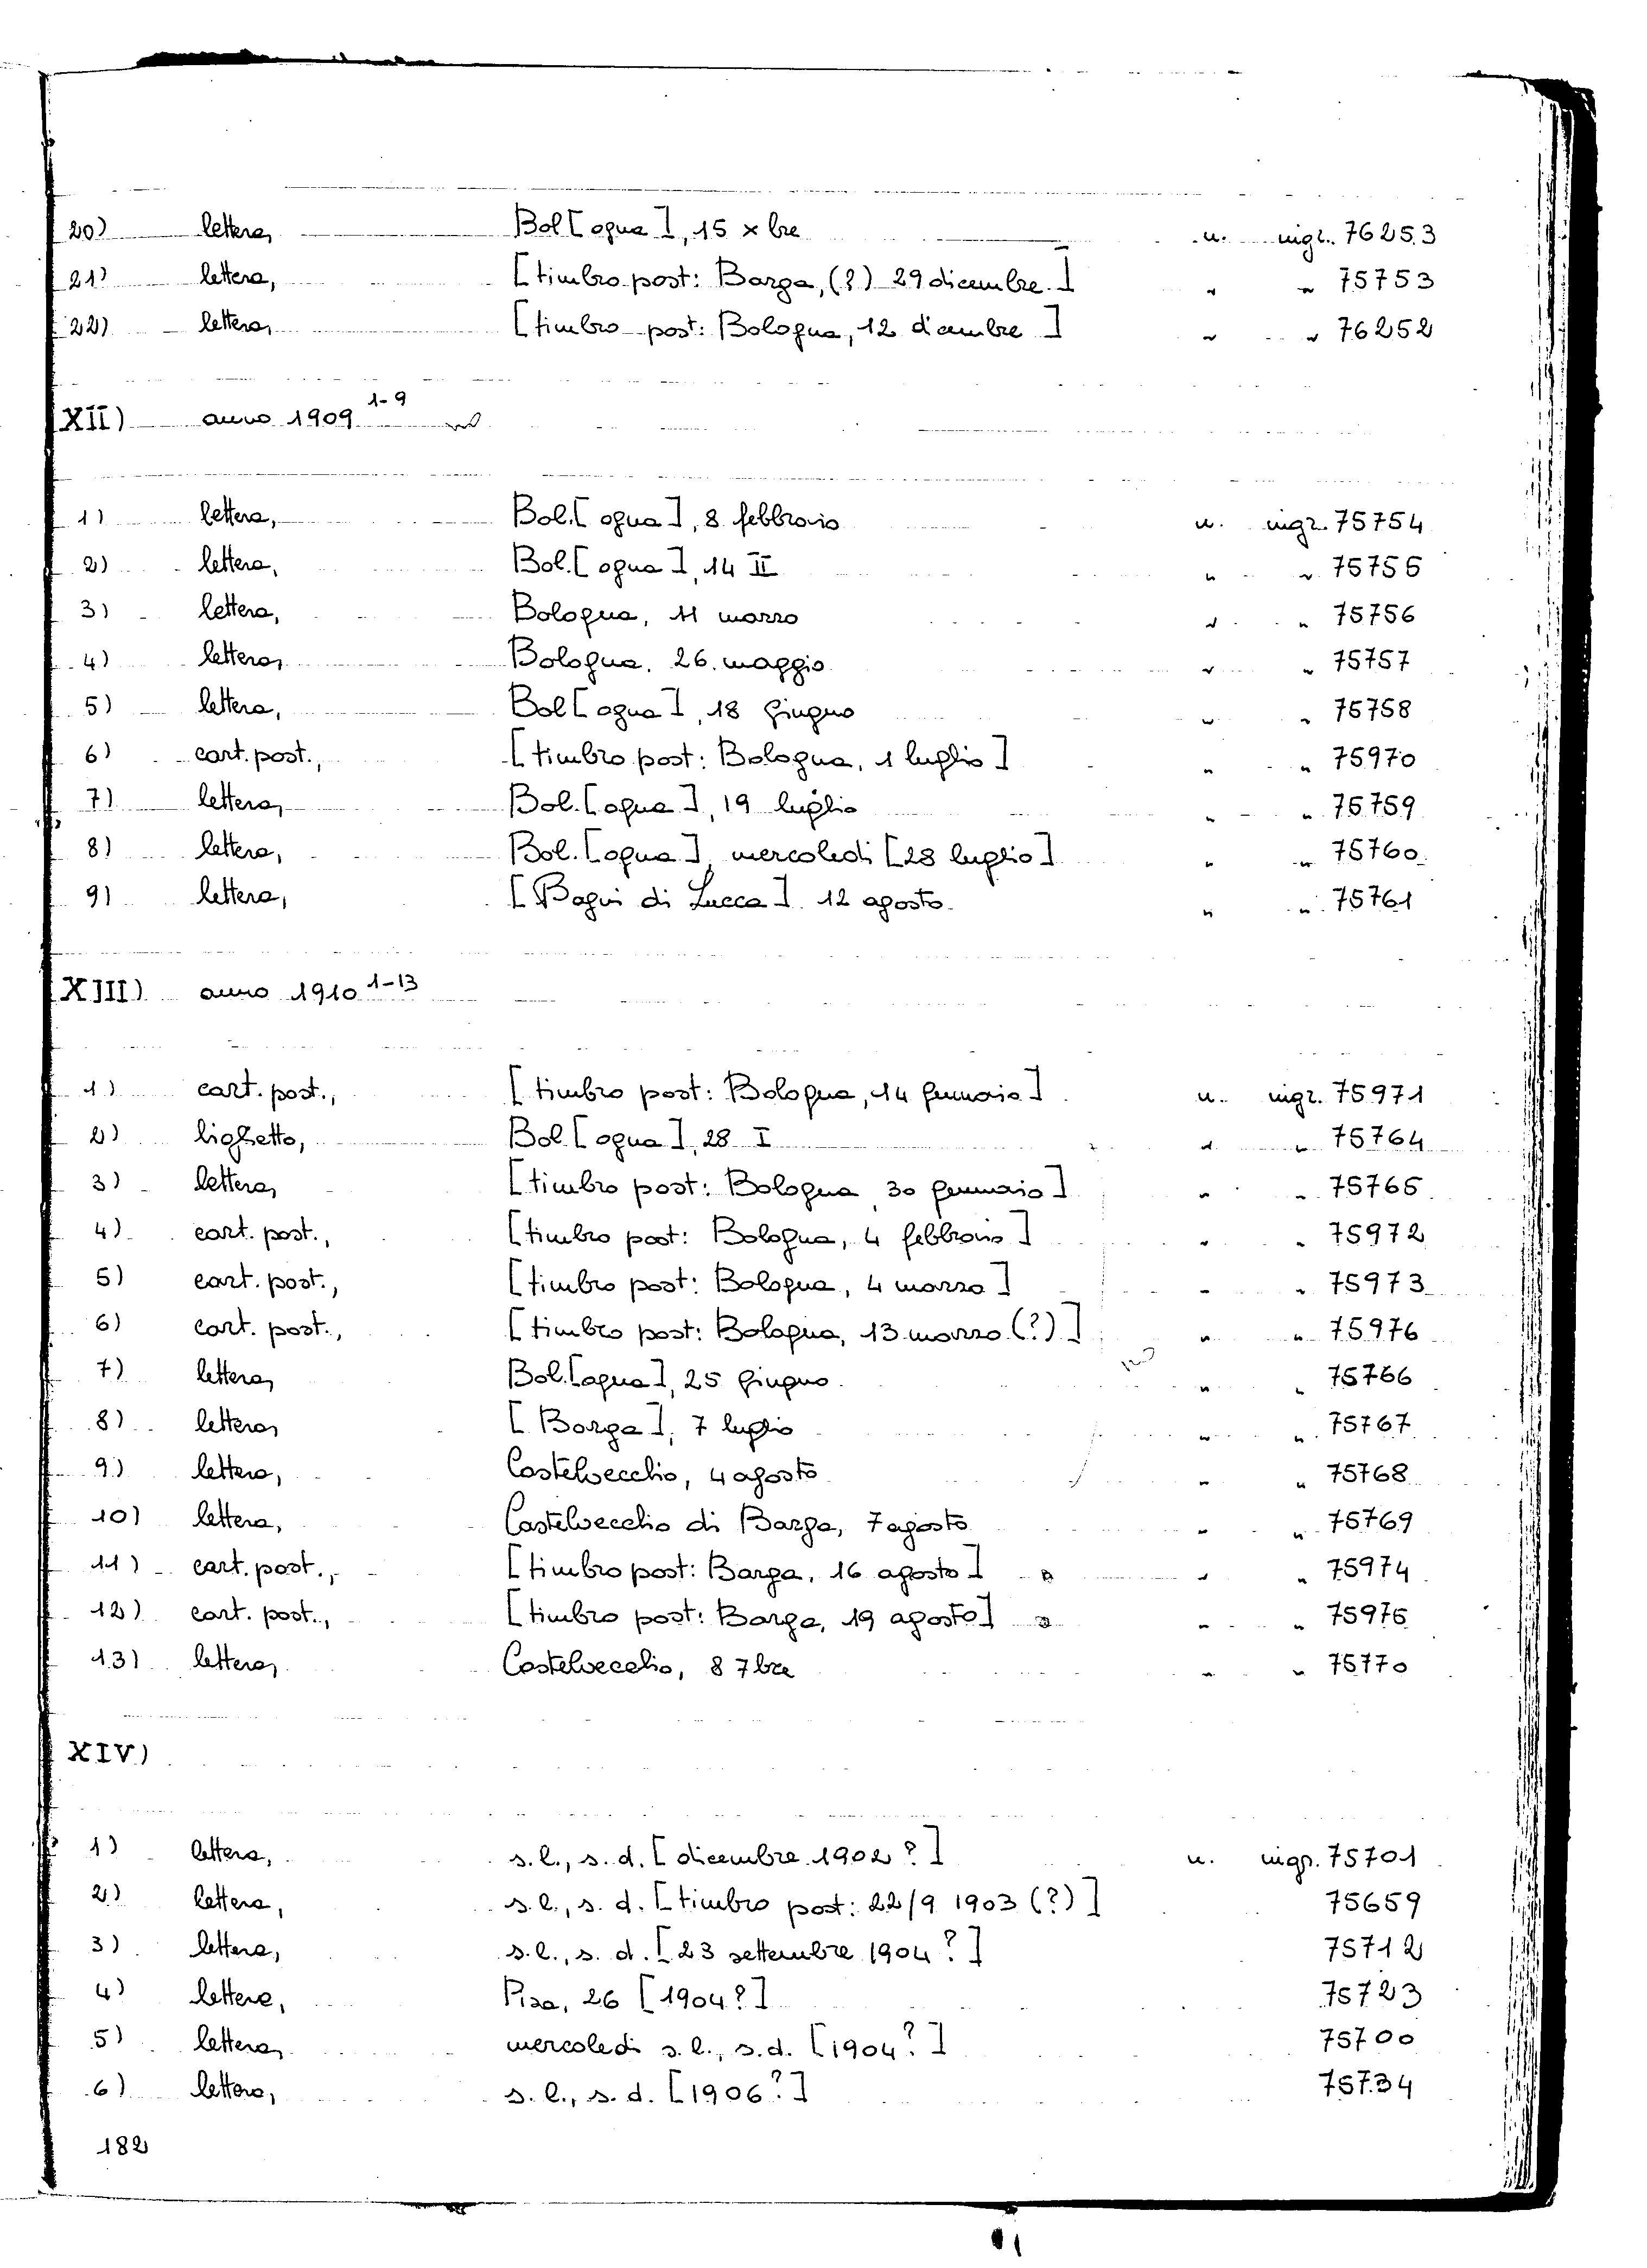 20) lettera, Bol[ogna], 15 xbre n. ingr. 76253
21) lettera, [timbro post: Barga, (?) 29 dicembre] " " 75753
22) lettera, [timbro post: Bologna, 12 dicembre] " " 76252
XII) anno 1909 1-9
1) lettera, Bol.[ogna], 8 febbraio n. ingr. 75754
2) lettera, Bol.[ogna], 14 II " " 75755
3) lettera, Bologna, 11 marzo " " 75756
4) lettera, Bologna, 26 maggio " " 75757
5) lettera, Bol[ogna], 18 giugno " " 75758
6) cart. post., [timbro post: Bologna, 1 luglio] " " 75970
7) lettera, Bol.[ogna], 19 luglio " " 75759
8) lettera, Bol.[ogna], mercoledì [28 luglio] " " 75760
9) lettera, [Bagni di Lucca] 12 agosto " " 75761
XIII) anno 1910 1-13
1) cart. post., [timbro post: Bologna, 14 gennaio] n. ingr. 75971
2) biglietto, Bol[ogna], 28 I " " 75764
3) lettera, [timbro post: Bologna, 30 gennaio] " " 75765
4) cart. post., [timbro post: Bologna, 4 febbraio] " " 75972
5) cart. post., [timbro post: Bologna, 4 marzo] " " 75973
6) cart. post., [timbro post: Bologna, 13 marzo (?)] " " 75976
7) lettera, Bol.[ogna], 25 giugno " " 75766
8) lettera, [Barga], 7 luglio " " 75767
9) lettera, Castelvecchio, 4 agosto " " 75768
10) lettera, Castelvecchio di Barga, 7 agosto " " 75769
11) cart. post., [timbro post: Barga, 16 agosto] " " 75974
12) cart. post., [timbro post: Barga, 19 agosto] " " 75975
13) lettera, Castelvecchio, 8 7bre " " 75770
XIV)
1) lettera, s.l., s.d. [dicembre 1902?] n. ingr. 75701
2) lettera, s.l., s.d. [timbro post: 22/9 1903 (?)] 75659
3) lettera, s.l., s.d. [23 settembre 1904?] 75712
4) lettera, Pisa, 26 [1904?] 75723
5) lettera, mercoledì s.l., s.d. [1904?] 75700
6) lettera, s.l., s.d. [1906?] 75734
182